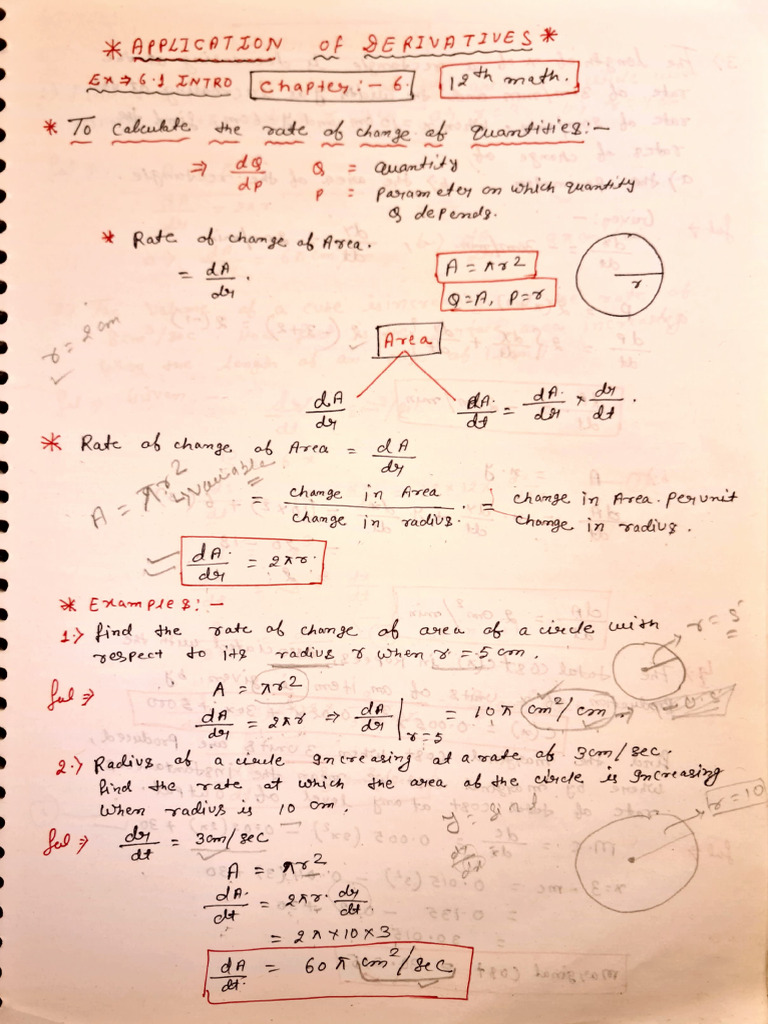 * APPLICATION of DERIVATIVES *
Ex → 6.1 INTRO Chapter:- 6. 12th math.
* To calculate the rate of change of quantities:-
⇒ dQ/dp Q = quantity
P = parameter on which quantity
Q depends.
* Rate of change of Area.
= dA/dr.
A = πr2
Q=A, P=r
r
r = 2 cm
Area
dA/dr
dA/dt = dA/dr × dr/dt.
* Rate of change of Area = dA/dr
A = πr2 → variable
= change in Area / change in radius. = change in Area. per unit change in radius.
dA/dr = 2πr.
* Examples:-
1.) find the rate of change of area of a circle with
respect to its radius r when r = 5 cm.
r = 5
Sol ⇒ A = πr2
dA/dr = 2πr ⇒ dA/dr | r=5 = 10π cm²/cm.
2.) Radius of a circle increasing at a rate of 3cm/sec.
find the rate at which the area of the circle is increasing
when radius is 10 cm.
r = 10
Sol ⇒ dr/dt = 3cm/sec
A = πr2
dA/dt = 2πr. dr/dt.
= 2π×10×3
dA/dt. = 60π cm²/sec